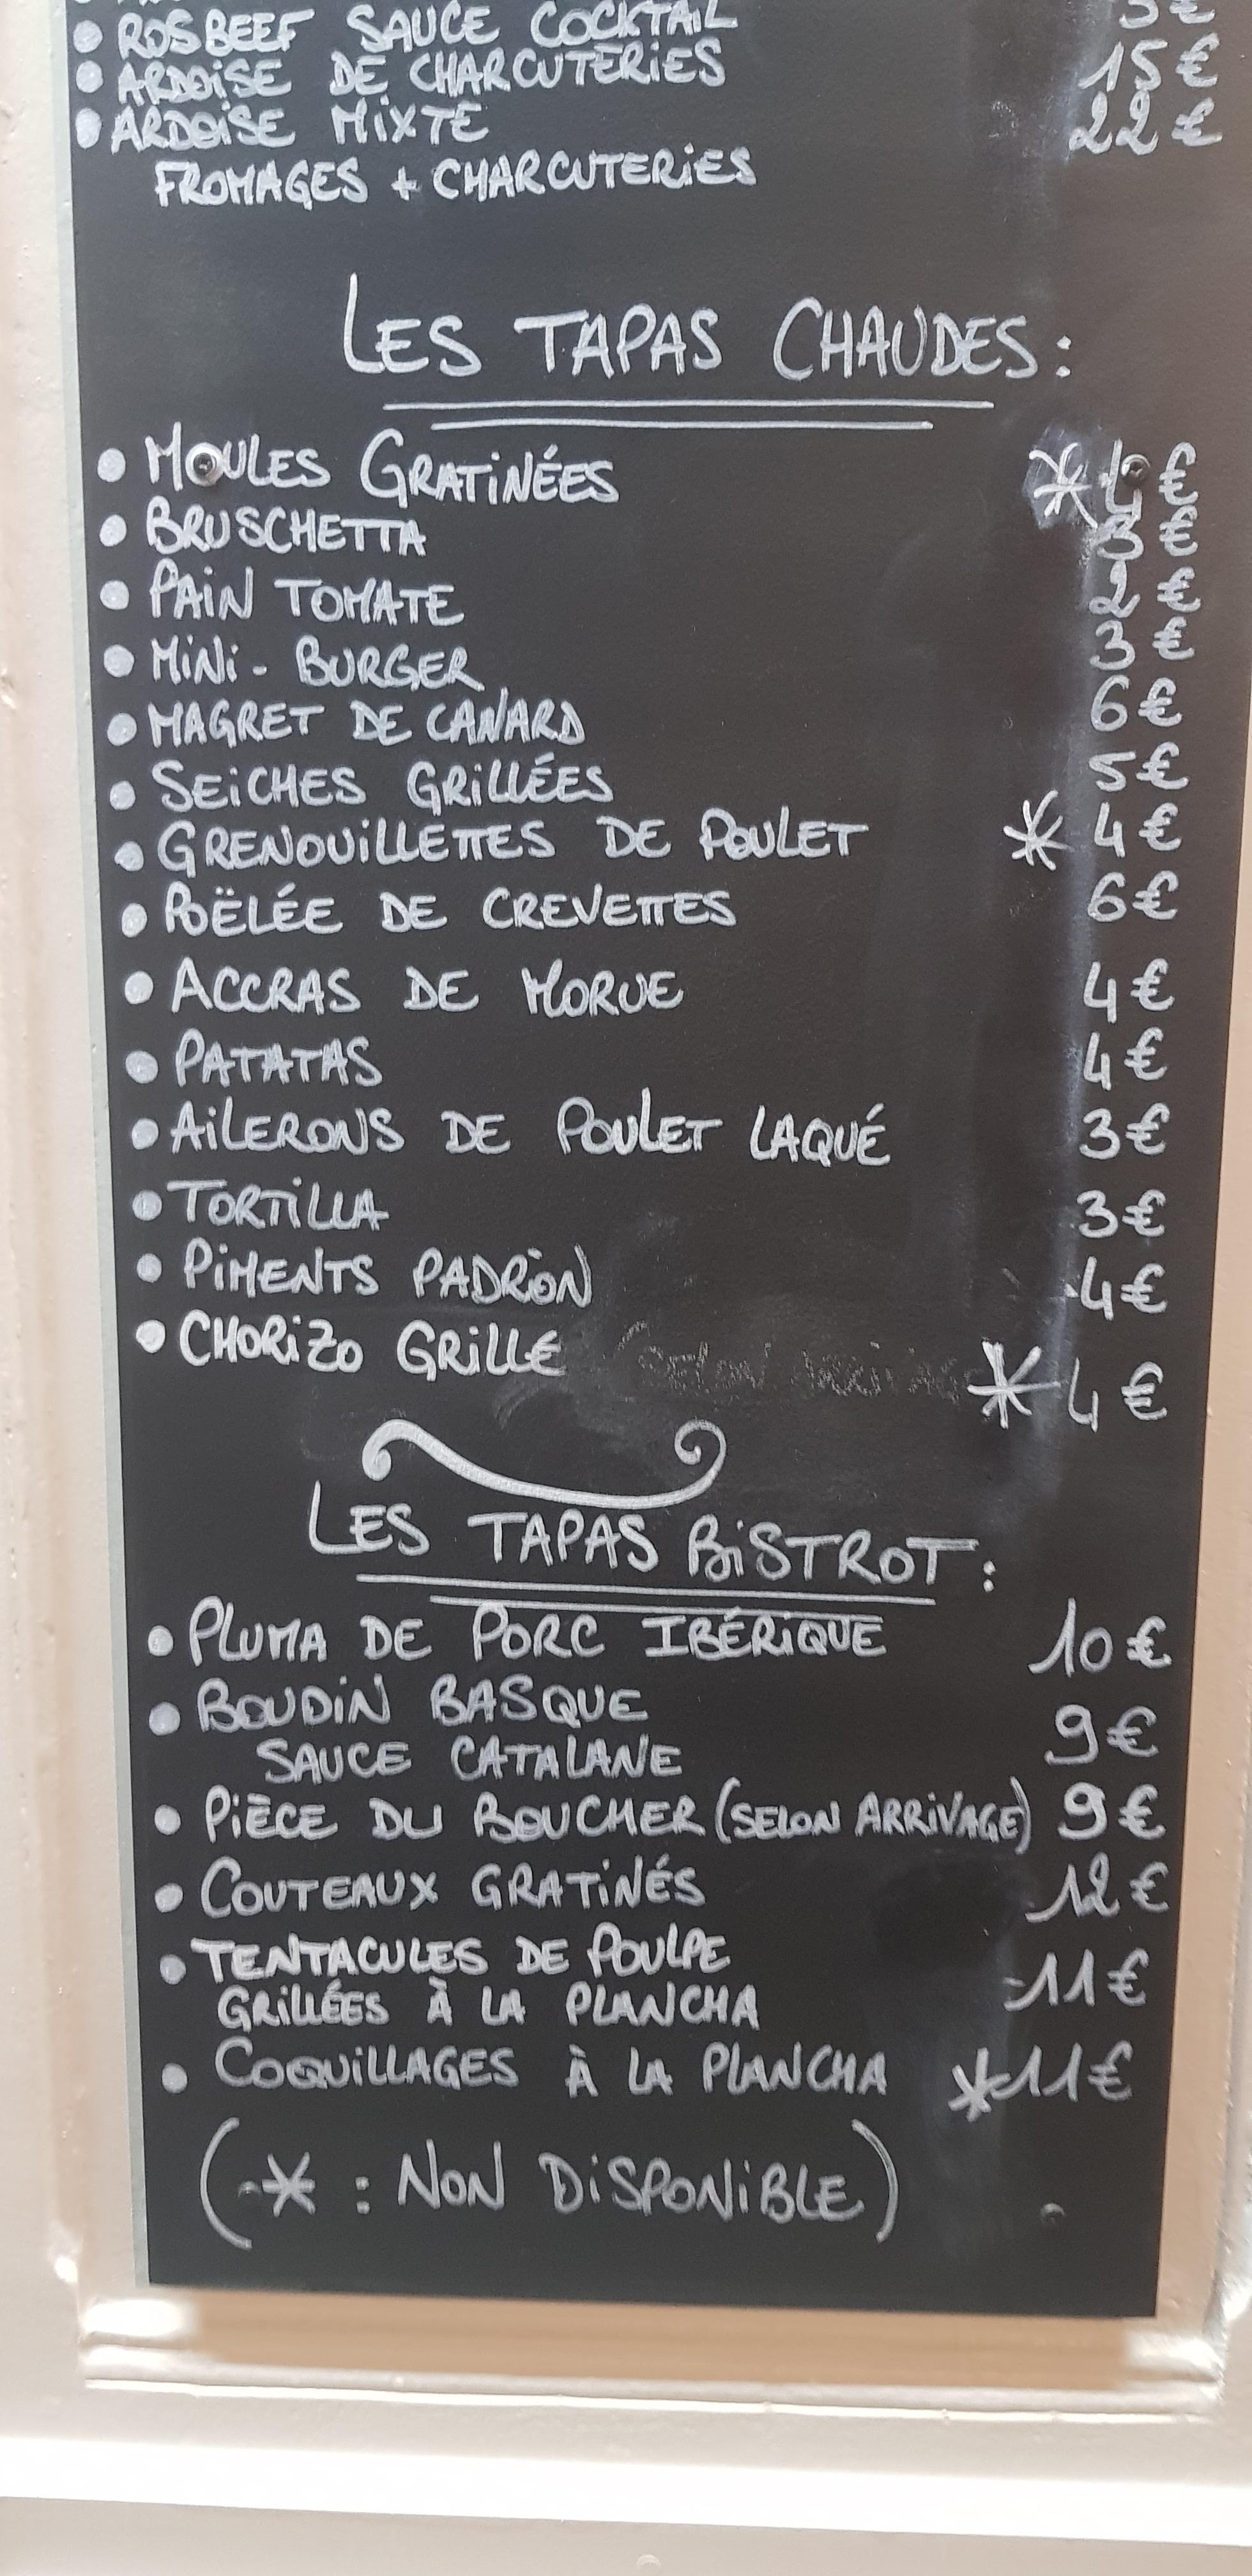 • ROSBEEF SAUCE COCKTAIL
• ARDOISE DE CHARCUTERIES 15€
• ARDOISE MIXTE 22€
FROMAGES + CHARCUTERIES
LES TAPAS CHAUDES :
• MOULES GRATINÉES * 4€
• BRUSCHETTA 3€
• PAIN TOMATE 2€
• MINI-BURGER 3€
• MAGRET DE CANARD 6€
• SEICHES GRILLÉES 5€
• GRENOUILLETTES DE POULET * 4€
• POËLÉE DE CREVETTES 6€
• ACCRAS DE MORUE 4€
• PATATAS 4€
• AILERONS DE POULET LAQUÉ 3€
• TORTILLA 3€
• PIMENTS PADRÓN 4€
• CHORIZO GRILLÉ * 4€
LES TAPAS BISTROT :
• PLUMA DE PORC IBÉRIQUE 10€
• BOUDIN BASQUE
SAUCE CATALANE 9€
• PIÈCE DU BOUCHER (SELON ARRIVAGE) 9€
• COUTEAUX GRATINÉS 12€
• TENTACULES DE POULPE
GRILLÉES À LA PLANCHA 11€
• COQUILLAGES À LA PLANCHA * 11€
(* : NON DISPONIBLE)